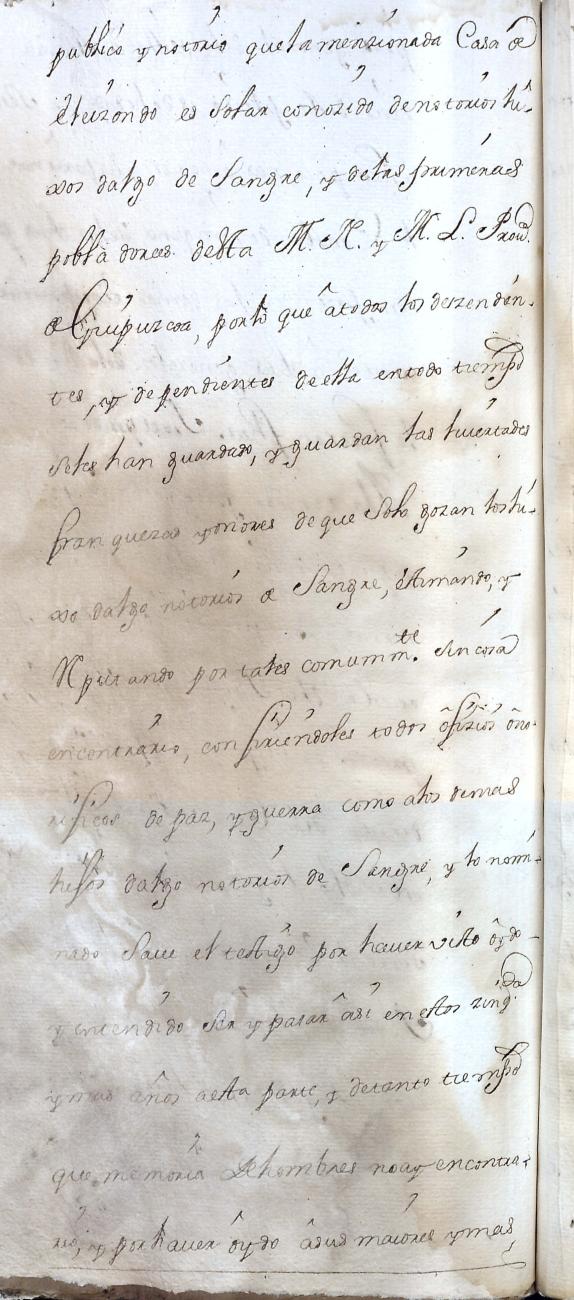 publico y notorio que la menzionada Casa de
Eleizondo es Solar conozido de notorios hi-
xos dalgo de Sangre, y delas primeras
pobladores desta M. N. y M. L. Prov.ª
de Guipuzcoa, porlo que â todos los deszendien-
tes, y dependientes de ella entodo tiempo
seles han guardado, y guardan las livertades
franquezas yonores deque Solo gozan los hi-
xo dalgo notorios de Sangre, estimando, y
Reputando por tales comunm.te Sin cosa
encontrario, confiriendoles todos ôfizios ôno-
rificos de paz, y guerra como alos demas
hijos dalgo notorios de Sangre, y lo nomi-
nado Save el testigo por haver visto ôydo
y entendido Ser y pasar âsi enestos zinq.ta
ymas años aesta parte, y detanto tiempo
que memoria de hombres noay encontra-
rio, y porhaver ôydo âsus maiores ymas